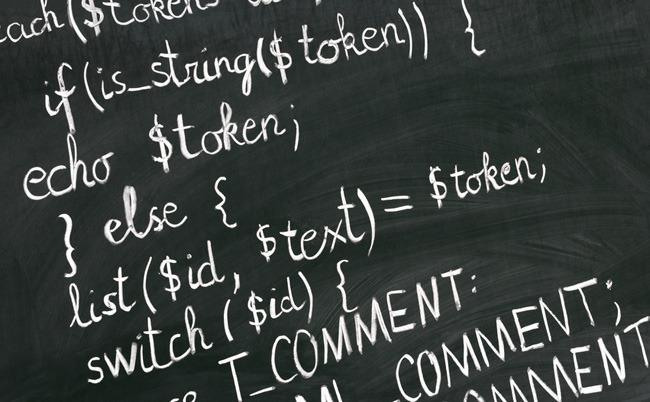 each($tokens
if(is_string($token)) {
echo $token;
} else {
list($id, $text)= $token;
switch ($id) {
T_COMMENT:
_COMMENT;
COMMENT